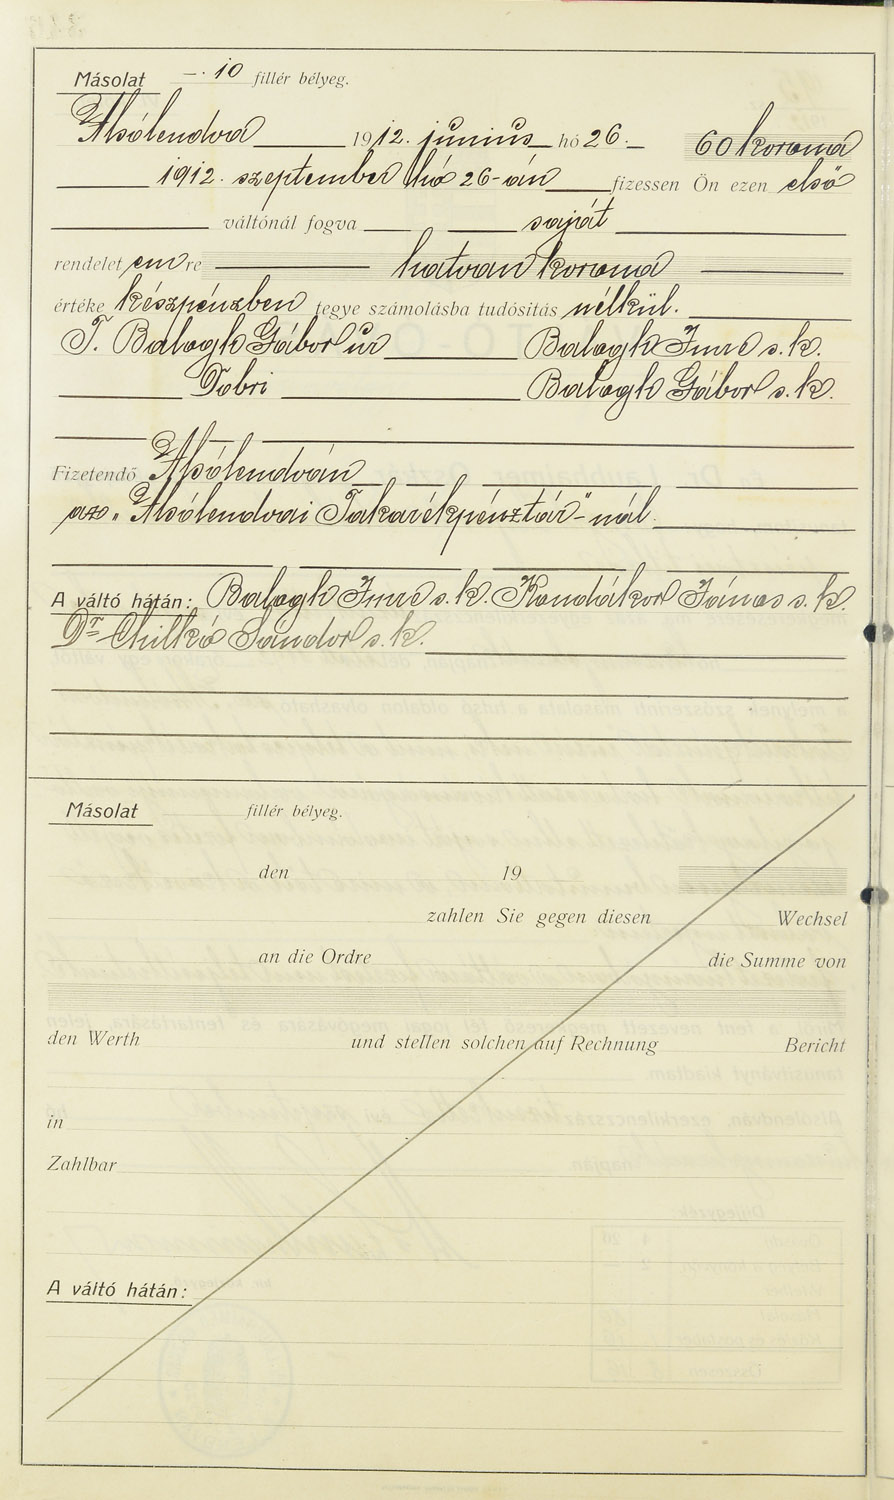 Másolat —·10 fillér bélyeg.
Alsólendva 1912. június hó 26. 60 korona
1912. szeptember hó 26-án fizessen Ön ezen első
váltónál fogva saját
rendelet em re hatvan korona
értéke készpénzben tegye számolásba tudósitás nélkül.
T. Balogh Gábor úr Balogh Imre s. k.
Dobri Balogh Gábor s. k.
Fizetendő Alsólendván
az „Alsólendvai Takarékpénztár"-nál.
A váltó hátán: Balogh Imre s. k. Kondákor János s. k.
Dr Sándor s. k.
Másolat fillér bélyeg.
den 19
zahlen Sie gegen diesen Wechsel
an die Ordre die Summe von
den Werth und stellen solchen auf Rechnung Bericht
in
Zahlbar
A váltó hátán: